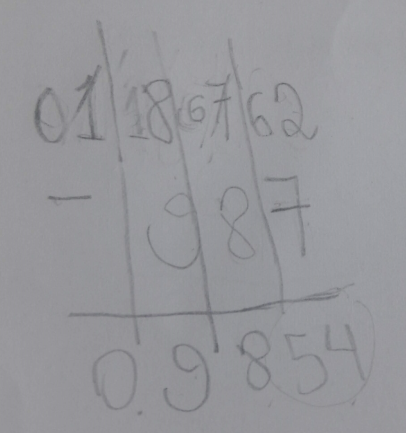 01 18 67 62
- 9 8 7
0.9 8 54